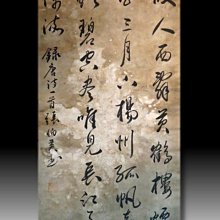 故人西辭黃鶴樓煙
花三月下楊州孤帆遠
影碧空盡唯見長江天
際流 錄唐詩一首張伯英書